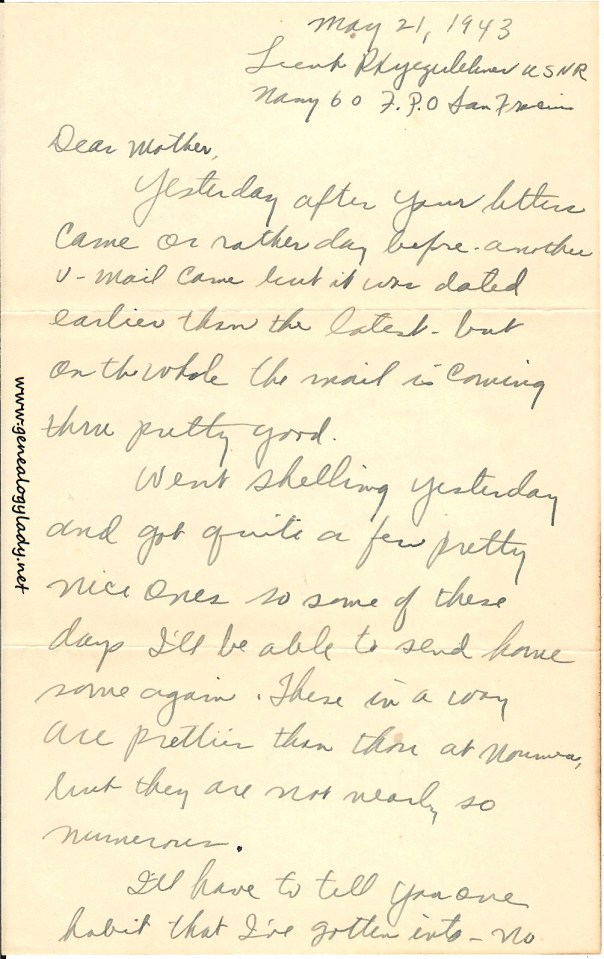 May 21, 1943
Lieut Yegerlehner USNR
Navy 60 F.P.O San Francisco
Dear Mother,
Yesterday after your letters
came or rather day before - another
v-mail came but it was dated
earlier than the latest - but
on the whole the mail is coming
thru pretty good.
Went shelling yesterday
and got quite a few pretty
nice ones so some of these
days I'll be able to send home
some again. These in a way
are prettier than those at Noumea,
but they are not nearly so
numerous.
I'll have to tell you one
habit that I've gotten into - no
www.genealogylady.net